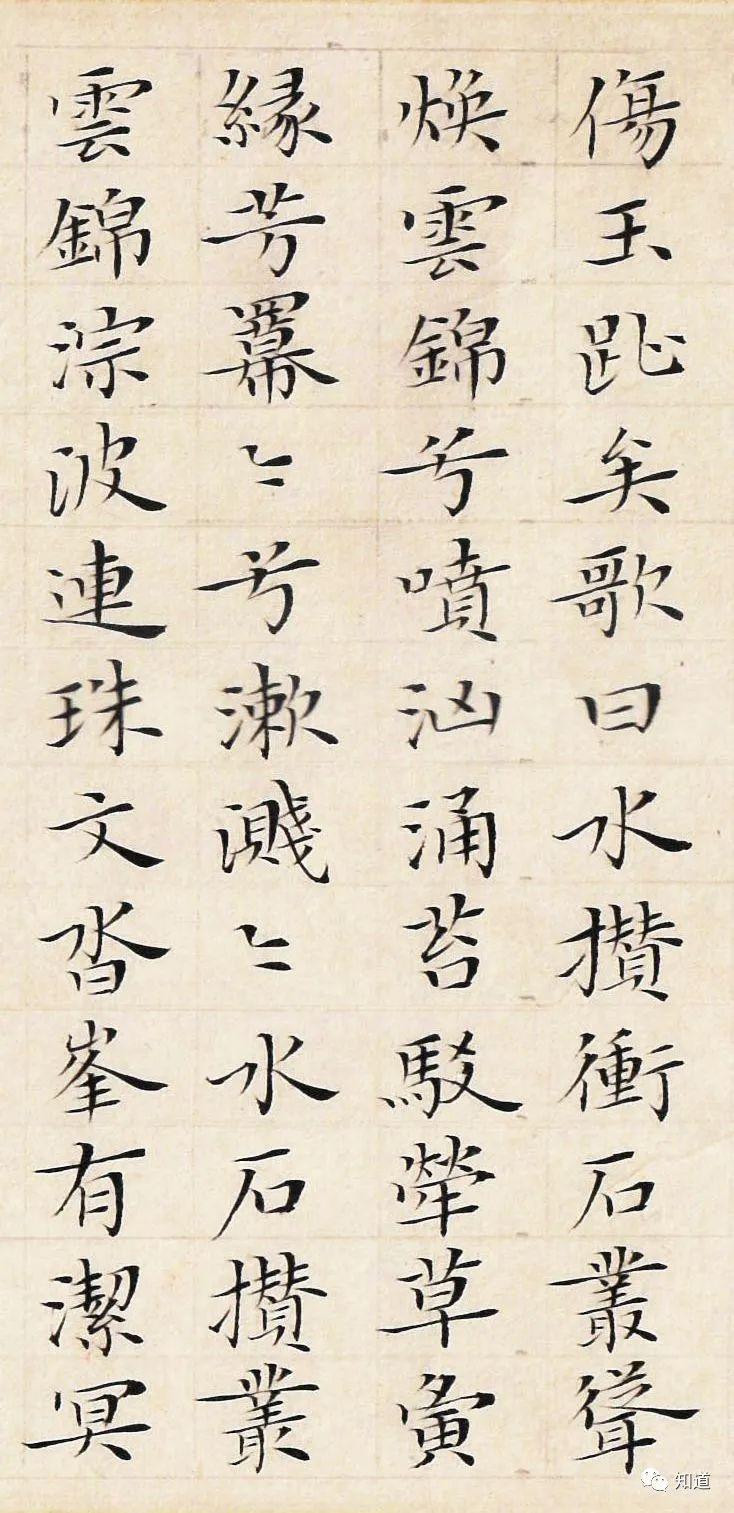 傷玉趾矣歌曰水攅衝石叢聳
煥雲錦兮噴汹涌苔駮犖草夤
縁芳羃〻兮漱濺〻水石攅叢
雲錦淙波連珠文沓峯有潔冥
知道